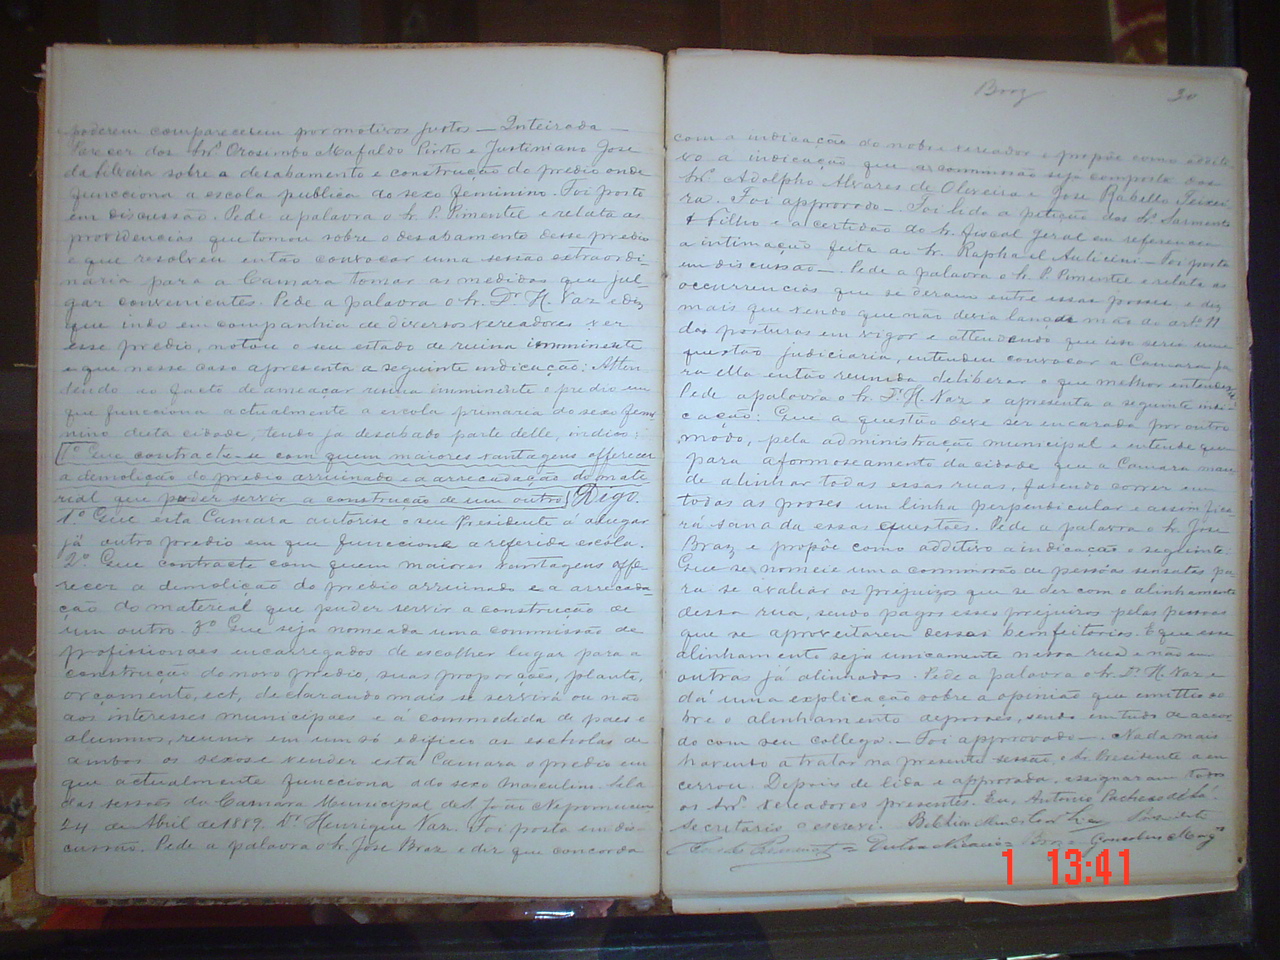 poderem comparecerem por motivos justos — Inteirada —
Parecer dos Snrs. Orosimbo Mafaldo Pinto e Justiniano José
da Silveira sobre o desabamento e construção do predio onde
funcciona a escola publica do sexo feminino. Foi posto
em discussão. Pede a palavra o Sr. P. Pimentel e relata as
providencias que tomou sobre o desabamento desse predio
e que resolveu então convocar uma sessão extraordi
naria para a Camara tomar as medidas que jul
gar convenientes. Pede a palavra o Sr. Dr. H. Vaz e diz
que indo em companhia de diversos vereadores ver
esse predio, notou o seu estado de ruina imminente
e que nesse caso apresenta a seguinte indicação: Atten
dendo ao facto de ameaçar ruina imminente o predio em
que funcciona actualmente a escola primaria do sexo femi
nino desta cidade, tendo já desabado parte delle, indico:
1º Que contracte-se com quem maiores vantagens offerecer
a demolição do predio arruinado e a arrecadação do mate
rial que puder servir a construcção de um outro) Digo.
1.º Que esta Camara autorise o seu Presidente a alugar
já outro predio em que funccione a referida escola.
2º Que contracte com quem maiores vantagens offe
recer a demolição do predio arruinado e a arrecada
ção do material que puder servir a construcção de
um outro. 3º Que seja nomeada uma commissão de
profissionaes encarregados de escolher lugar para a
construcção do novo predio, suas proporções, planta,
orçamento, ect, declarando mais se servirá ou não
aos interesses municipaes e á commodida de paes e
alumnos, reunir em um só edificio as escholas de
ambos os sexos e vender esta Camara o predio em
que actualmente funcciona a do sexo masculino. Sala
das sessões da Camara Municipal de S. João Nepomuceno
24 de Abril de 1889. Dr. Henrique Vaz. Foi posta em dis
cussão. Pede a palavra o Sr. José Braz e diz que concorda
Braz 30
com a indicação do nobre vereador e propõe como additi
vo a indicação que a commissão seja composta dos
Snrs. Adolpho Alvares de Oliveira e José Rabello Teixei
ra. Foi approvado —. Foi lida a petição dos Srs. Sarmento
& Filho e a certidão do Sr. fiscal geral em referencia
a intimação feita ao Sr. Raphael — Foi posta
em discussão —. Pede a palavra o Sr. P. Pimentel e relata as
occurrencias que se deram entre essas posses e diz
mais que vendo que não devia lançar mão do artº 11
das posturas em vigor e attendendo que isso seria uma
questão judiciaria, entendeu convocar a Camara pa
ra ella então reunida deliberar o que melhor entender.
Pede a palavra o Sr. Dr. H. Vaz e apresenta a seguinte indi
cação: Que a questão deve ser encarada por outro
modo, pela administração municipal e entende que
para aformoseamento da cidade que a Camara mande
de alinhar todas essas ruas, fazendo correr em
todas as posses um linha perpendicular e assim fica
rá sanada essas questões. Pede a palavra o Sr. José
Braz e propõe como additivo a indicação seguinte
Que se nomeie uma commissão de pessôas sensatas pa
ra se avaliar os prejuizos que se der com o alinhamento
dessa rua, sendo pagos esses prejuizos pelas pessoas
que se aproveitarem dessas bemfeitorias. E que esse
alinhamento seja unicamente nessa rua e não em
outras já alinhadas. Pede a palavra o Sr. Dr. H. Vaz e
dá uma explicação sobre a opinião que emittio so
bre o alinhamento de posses, sendo em tudo de accor
do com seu collega. — Foi approvado —. Nada mais
havendo a tratar na presente sessão, o Sr. Presidente a en
cerrou. Depois de lida e approvada, assignaram todos
os Snrs. vereadores presentes. Eu, Antonio Pacheco
secretario o escrevi.
Pimentel = Braz
1 13:41